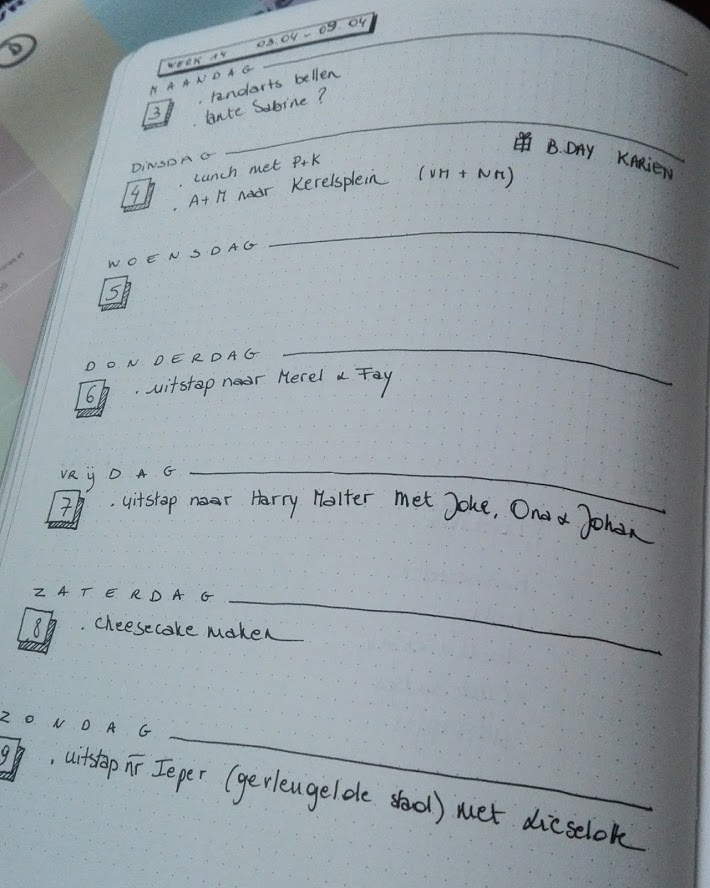 WEEK 14 03.04 - 09.04
MAANDAG
3
. tandarts bellen
. tante Sabine ?
DINSDAG
4
. Lunch met P+K
. A+M naar Kerelsplein (VM + NM)
B.DAY KARIEN
WOENSDAG
5
DONDERDAG
6
. uitstap naar Merel & Fay
VRIJDAG
7
. uitstap naar Harry Malter met Joke, Ona & Johan
ZATERDAG
8
. cheesecake maken
ZONDAG
9
. uitstap nr Ieper (gevleugelde stad) met Lieselot